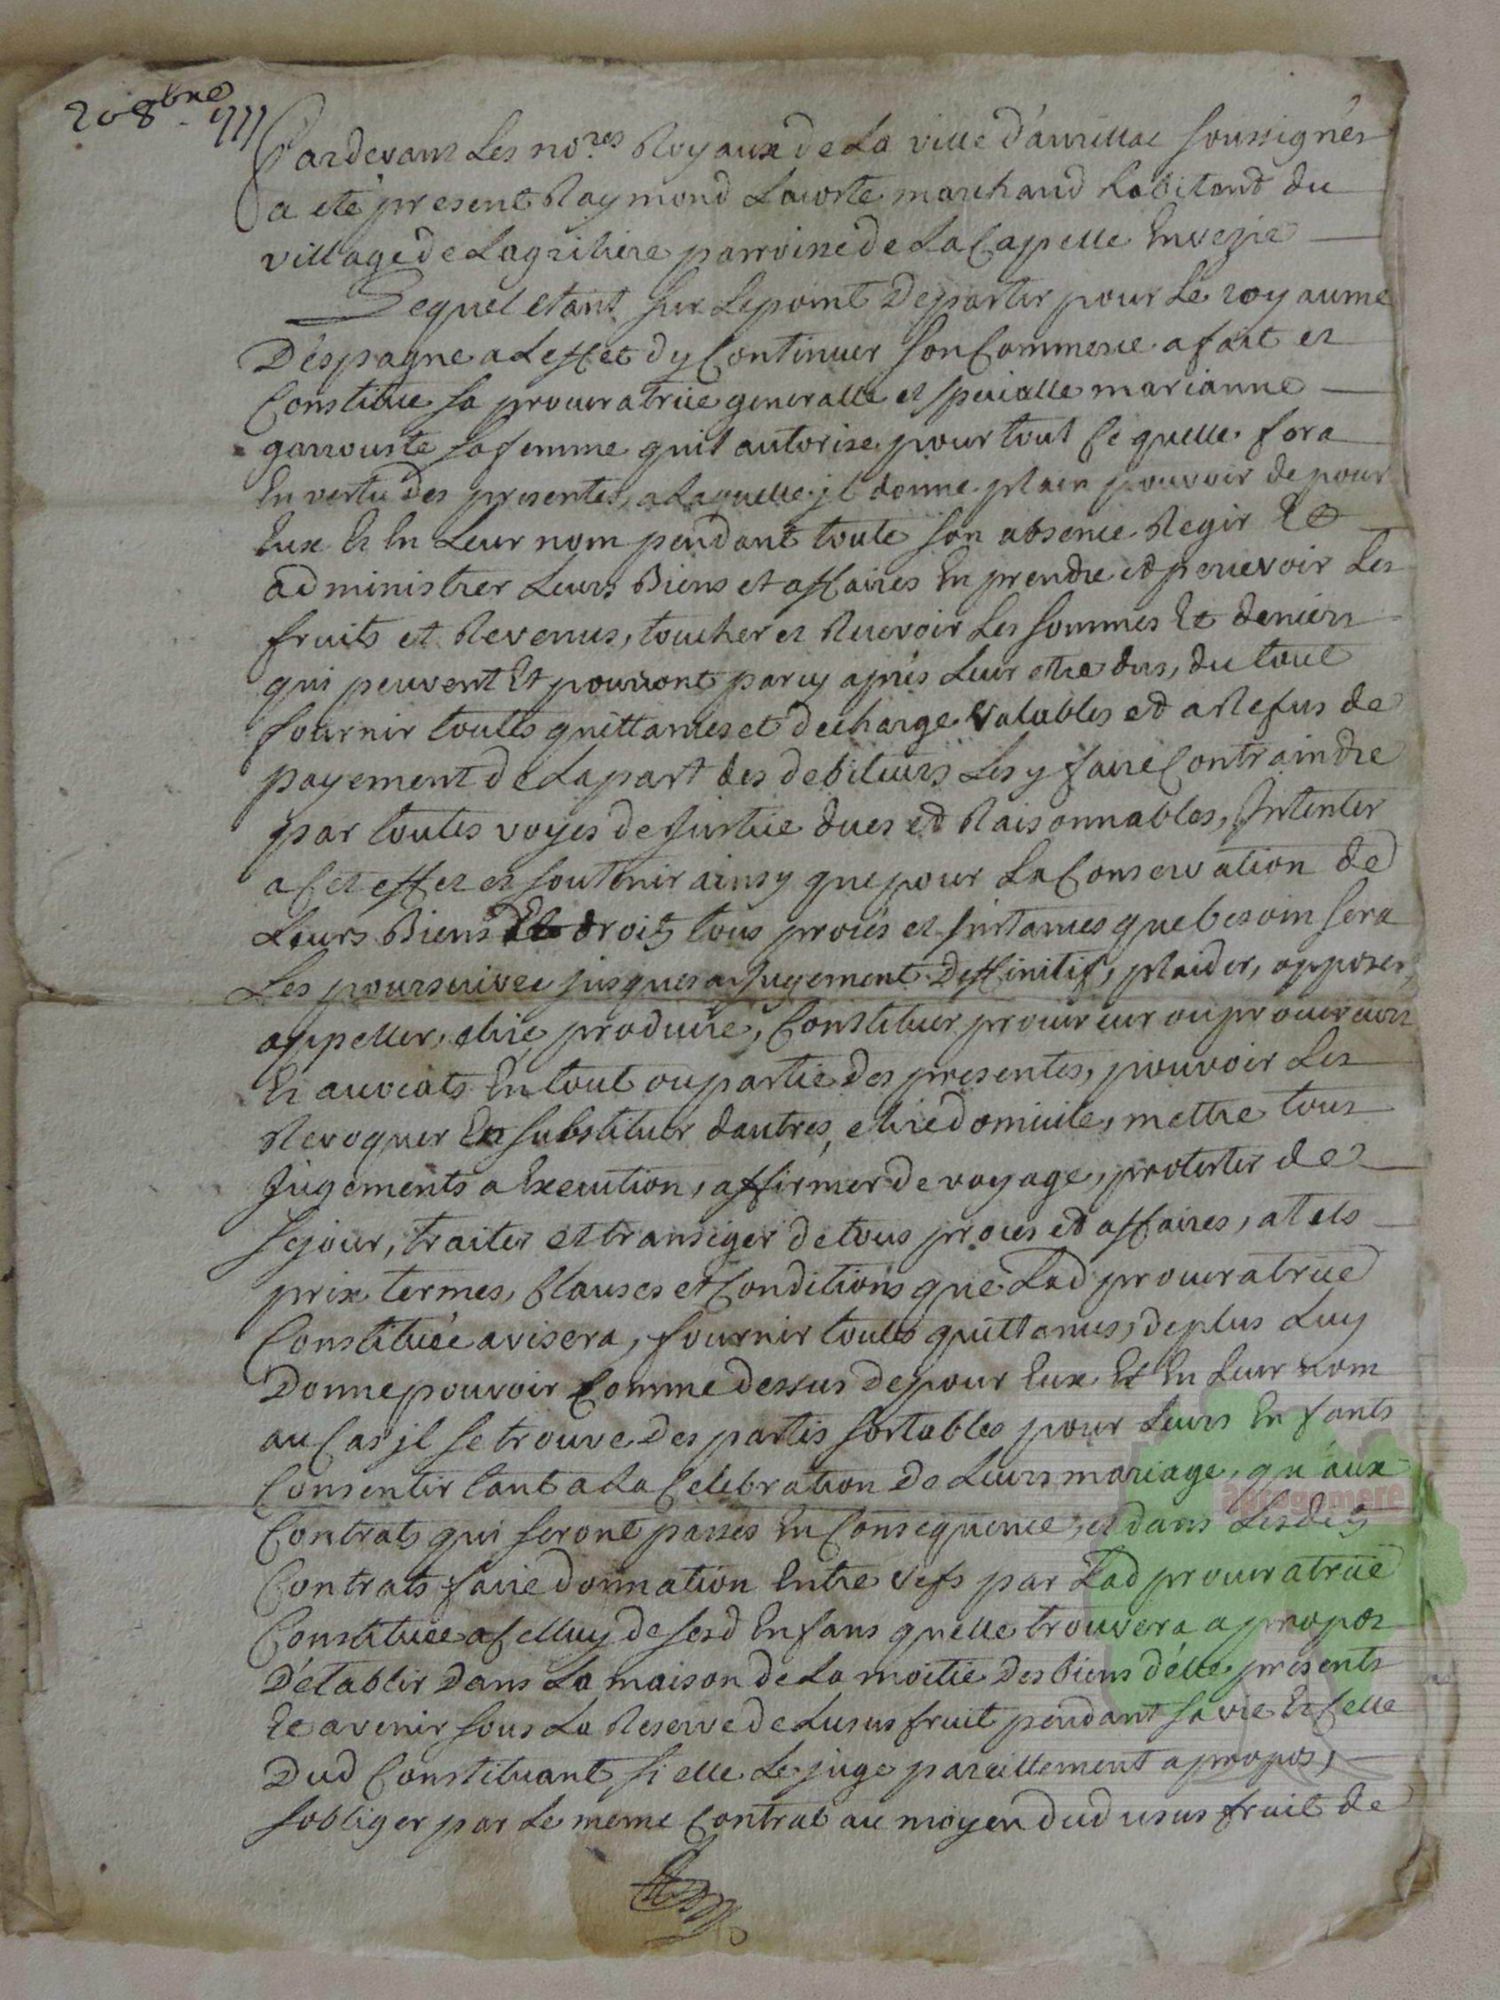 20 8bre
Pardevant Les no.res Royaux de La ville d'aurillac soussignés
a eté present Raymond Lacoste marchand habitant du
village de Lagriliere parroisse de LaCapelle Enverzie
Lequel etant sur Lepoint Departir pour Le royaume
D'espagne a Leffet dy Continuer son Commerce a fait et
Constitué sa procuratrice generalle et specialle marianne
garrouste sa femme quil autorise pour tout ce quelle fera
En vertu des presentes, a Laquelle jl donne plain pouvoir de pour
Eux Et En Leur nom pendant toute son absence Regir Et
administrer Leurs Biens et affaires En prendre et percevoir Les
fruits et Revenus, toucher et Recevoir Les sommes Et deniers
qui peuvent Et pourront parcy aprés Leur etre dus, du tout
fournir toutes quittances et decharge valables et a Refus de
payement de Lapart des debiteurs Les y faire Contraindre
par toutes voyes de Justice dues et Raisonnables, Intenter
a cet effet et soutenir ainsy que pour La Conservation de
Leurs Biens Et droits tous procés et Instances que besoin sera
Les poursuivre jusques a jugement Deffinitif, plaider, opposer,
appeller, elire produire, Constituer procureur ou procureurs
Et avocats En tout ou partie des presentes, pouvoir Les
Revoquer En substituer dautres, elire domicile, mettre tous
Jugements a Execution, affirmer de voyage, protester de
sejour, traiter et transiger de tous procés et affaires, a tels
prix termes, Clauses et Conditions que Lad procuratrice
Constituée avisera, fournir toutes quittances, deplus Luy
Donne pouvoir Comme dessus de pour Eux Et En Leur nom
au Cas jl se trouve des partis sortables pour Leurs Enfants
Consentir tant a La Celebration de Leurs mariage, qu'aux
Contrats qui seront passés En Consequence, et dans Lesdits
Contrats faire donnation Entre vifs par Lad procuratrice
Constituée a Celluy de sesd Enfans quelle trouvera a propos
D'etablir Dans La maison de La moitié des Biens d'elle presents
Et avenir sous La Reserve de Lusus fruit pendant sa vie Et Celle
Dud Constituant si elle Le juge pareillement apropos,
sobliger par Le meme Contrat au moyen dud usus fruit de
aprogemere